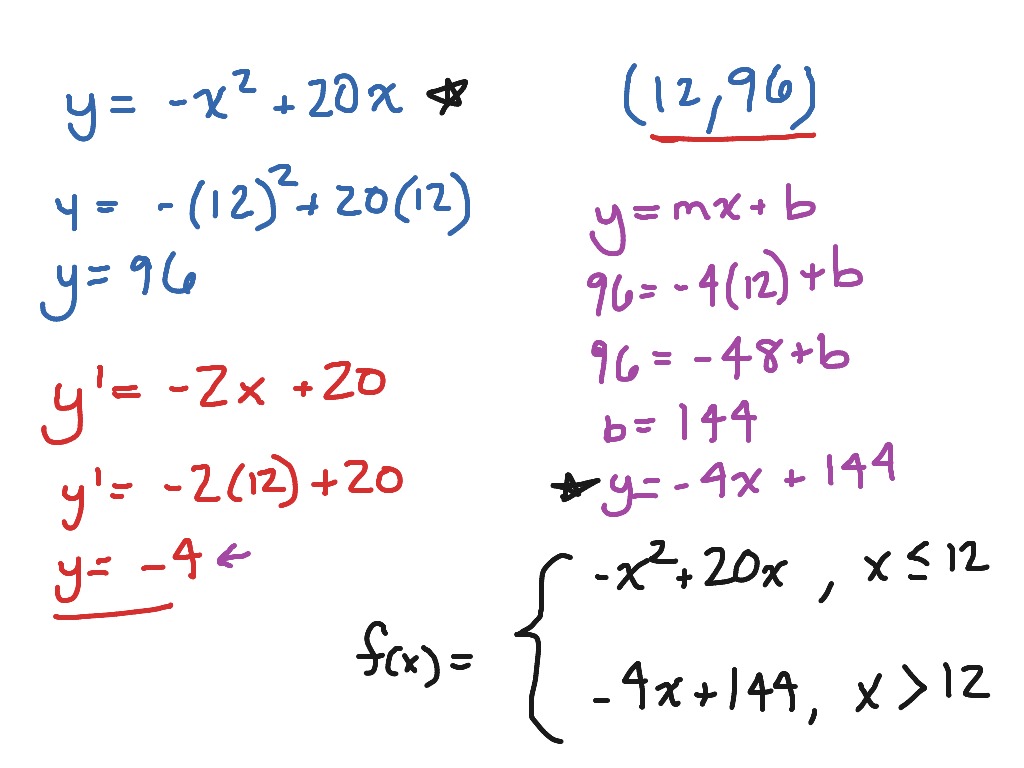 y = -x² + 20x ☆
y = -(12)² + 20(12)
y = 96
y' = -2x + 20
y' = -2(12) + 20
y = -4 ←
(12, 96)
y = mx + b
96 = -4(12) + b
96 = -48 + b
b = 144
★ y = -4x + 144
f(x) = {
-x² + 20x , x ≤ 12
-4x + 144, x > 12